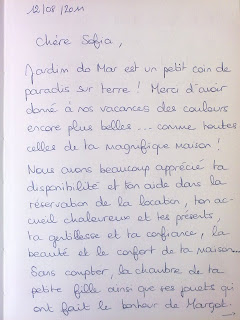 12/08/2011
Chère Sofia,
Jardim do Mar est un petit coin de
paradis sur terre ! Merci d'avoir
donné à nos vacances des couleurs
encore plus belles ... comme toutes
celles de ta magnifique maison !
Nous avons beaucoup apprécié ta
disponibilité et ton aide dans la
réservation de la location, ton ac-
cueil chaleureux et tes présents,
ta gentillesse et ta confiance, la
beauté et le confort de ta maison...
Sans compter, la chambre de ta
petite fille ainsi que ses jouets qui
ont fait le bonheur de Margot.
→